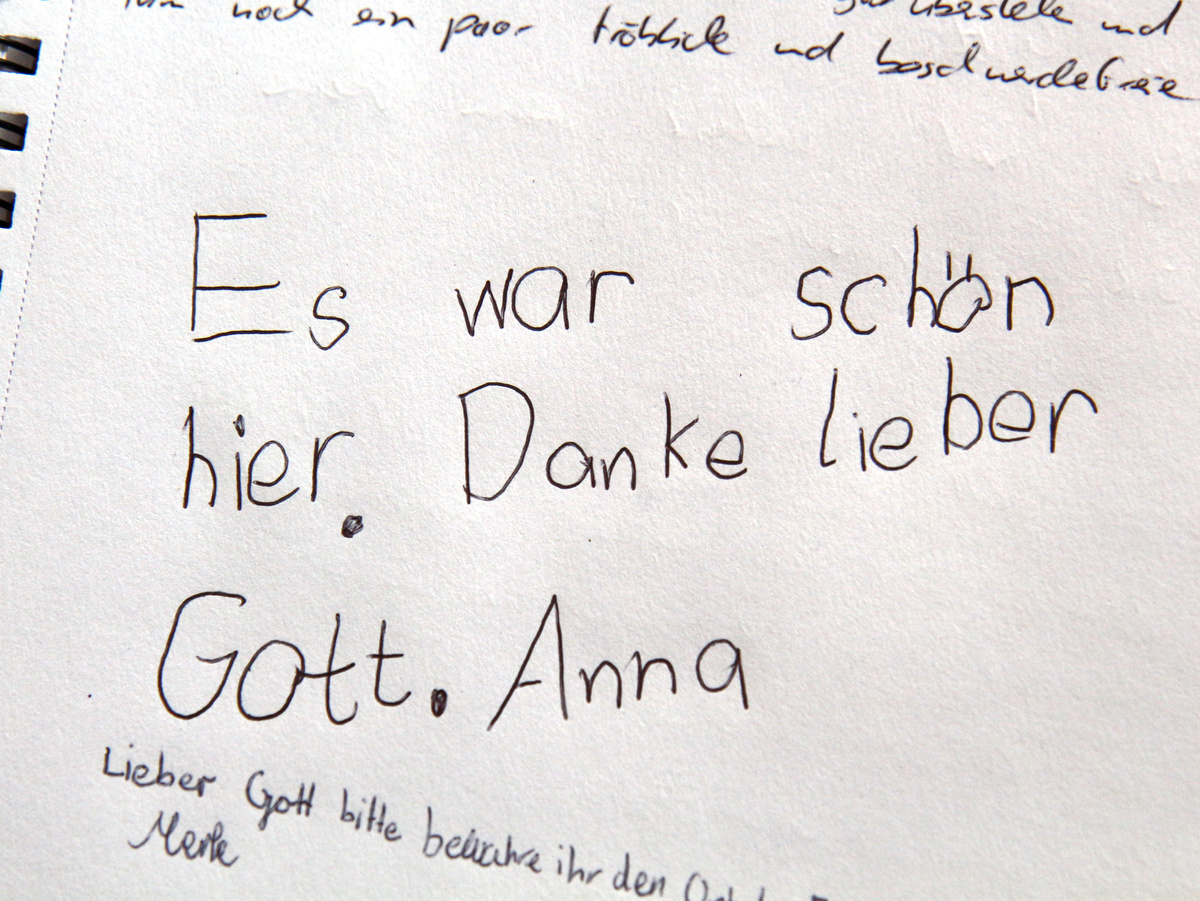 noch ein paar fröhliche und beschwerdefreie
und
Es war schön
hier. Danke lieber
Gott. Anna
Lieber Gott bitte bewahre ihr den
Merle